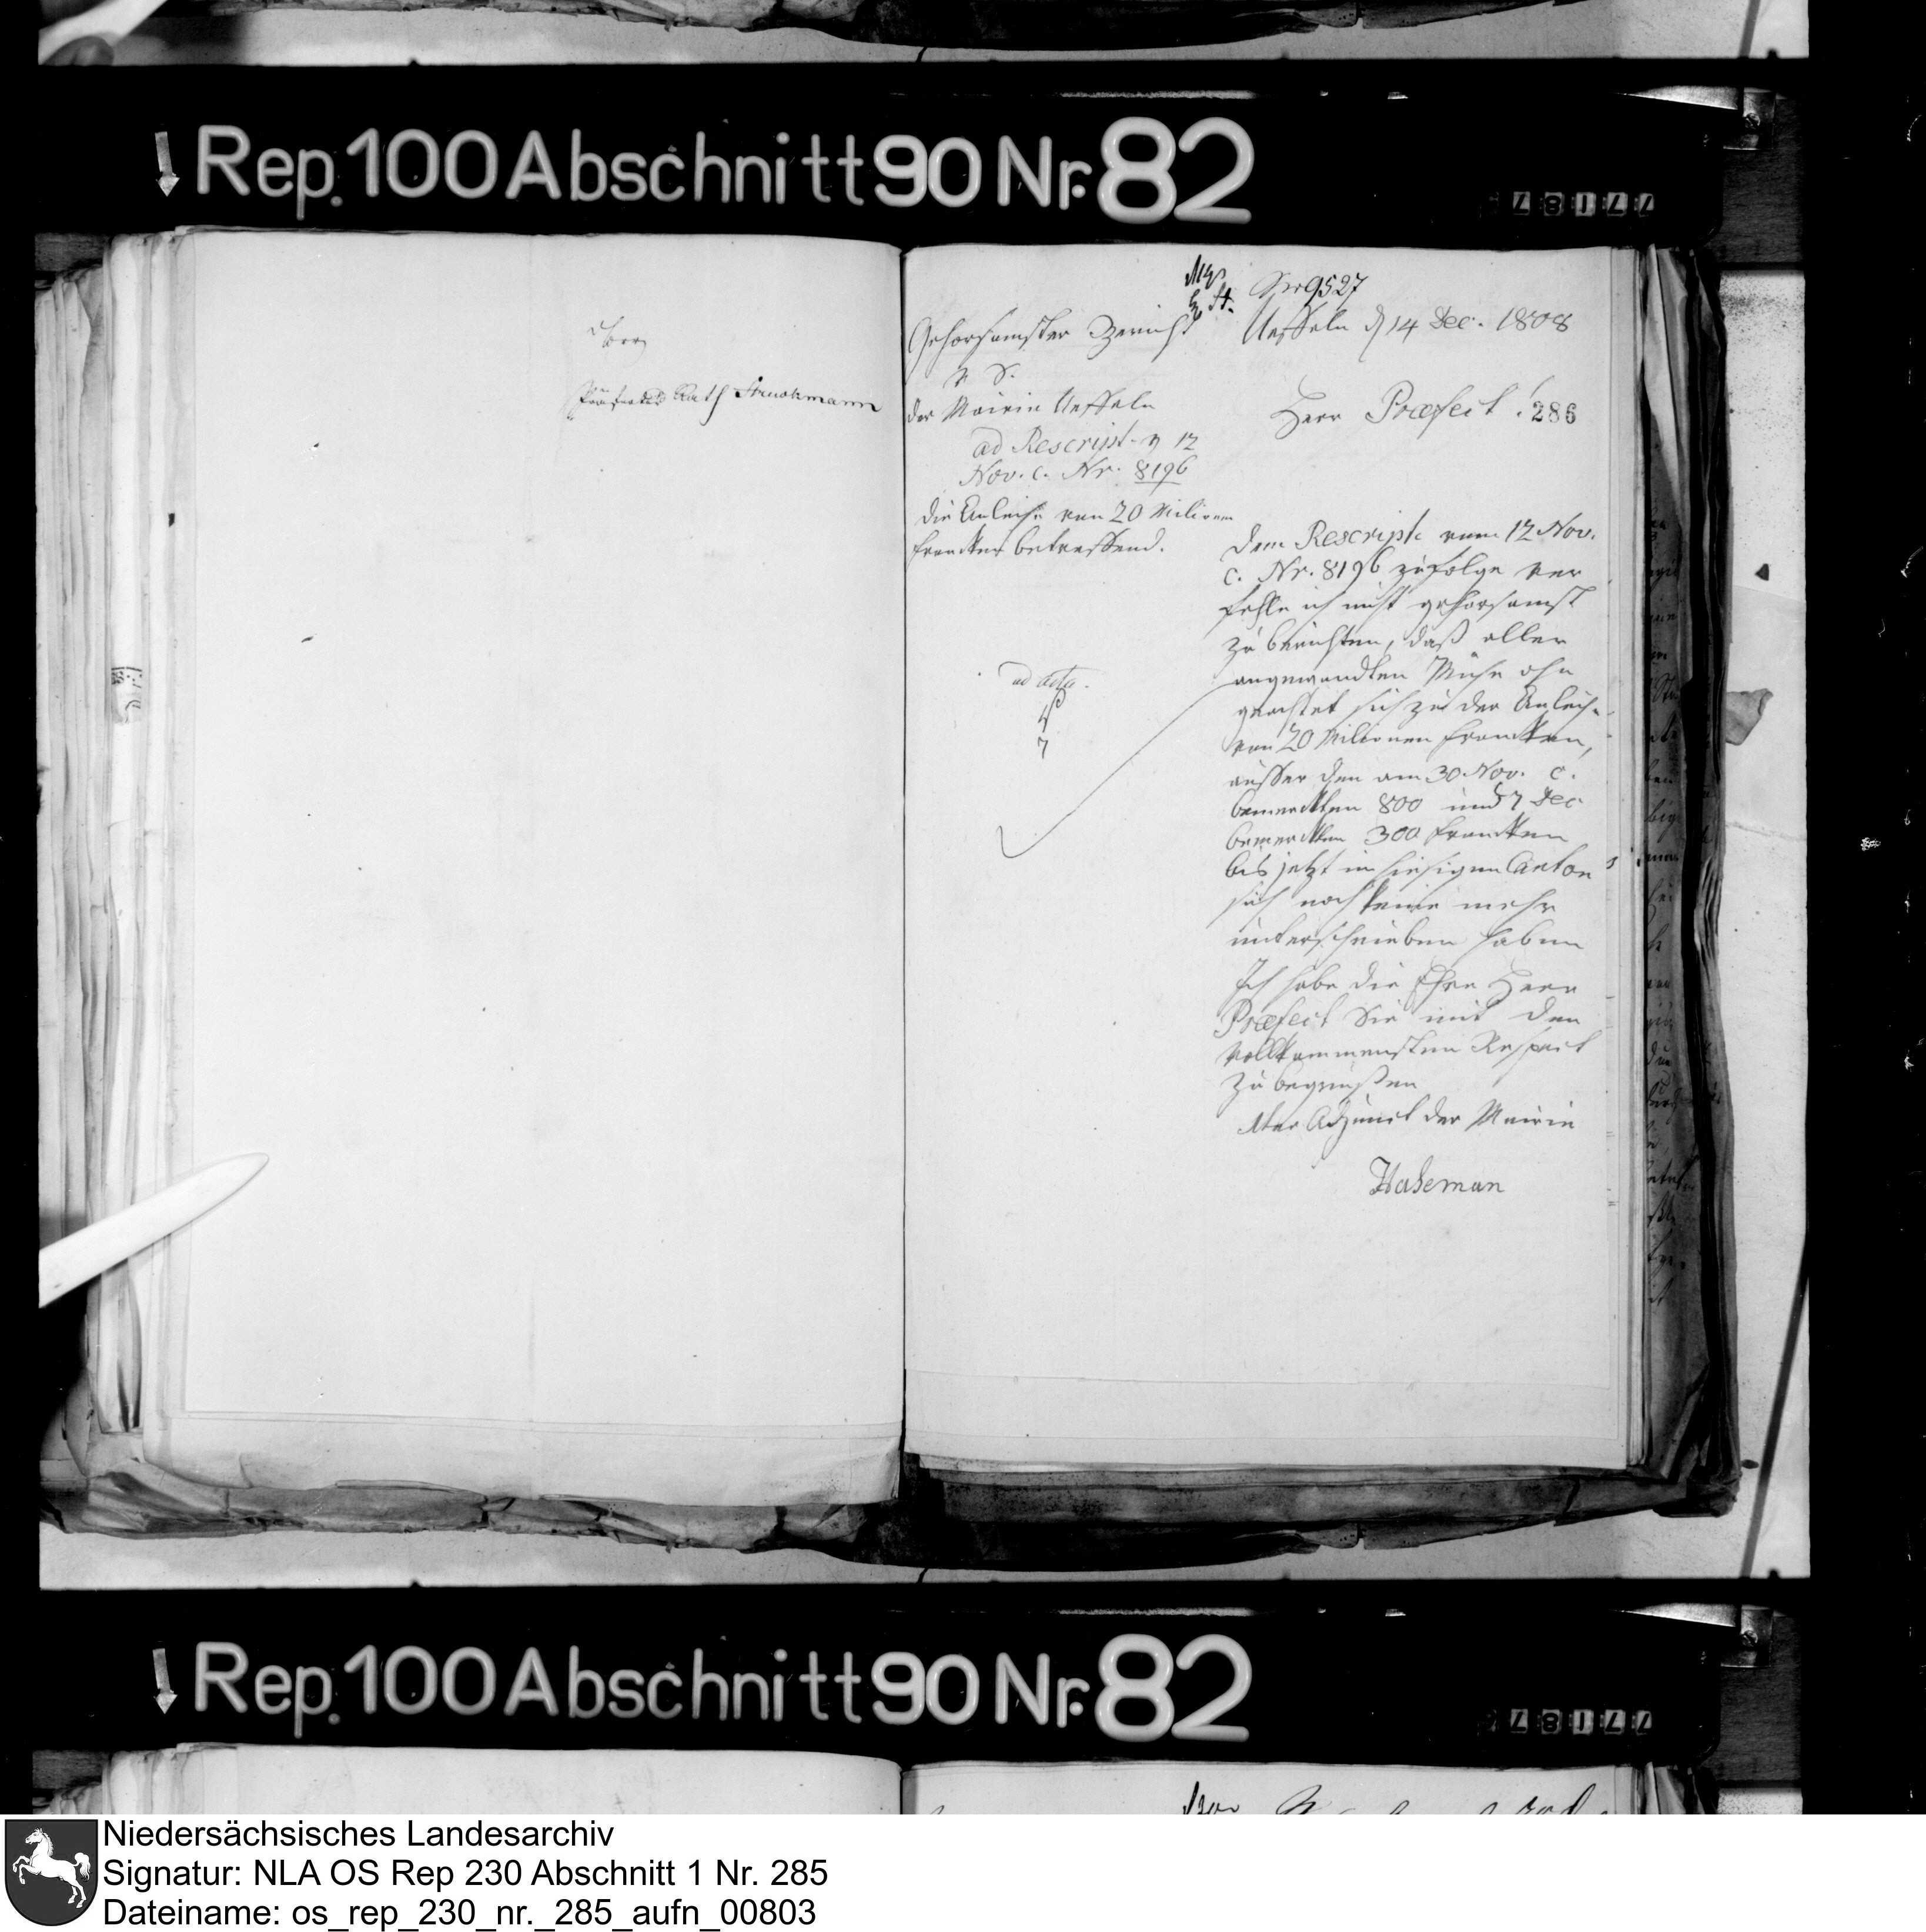 Rep. 100 Abschnitt 90 Nr. 82
77187
Präfectur Rath Struckmann
Nr 9527
Gehorsamster Bericht
der Mairie Ueffeln
ad Rescript. v 12
Nov. c. Nr. 8196
die Anleihe von 20 Milionen
Francken betreffend.
ad acta.
Ueffeln d 14 Dec. 1808
Herr Præfect!
286
Dem Rescripte vom 12 Nov.
c. Nr. 8196 zufolge ver
fehle ich nicht gehorsamst
zu berichten, daß aller
angewandten Mühe ohn
geachtet sich zu der Anleihe
von 20 Milionen Francken,
ausser den am 30 Nov. c.
bemerckten 800 und 7 Dec
bemerckten 300 Francken
bis jetzt im hiesigen Canton
sich noch keine mehr
unterschrieben haben
Ich habe die Ehre Herr
Præfect Sie mit den
vollkommensten Respect
zu begrüßen
Adjunct der Mairie
Haseman
Rep. 100 Abschnitt 90 Nr. 82
77187
Niedersächsisches Landesarchiv
Signatur: NLA OS Rep 230 Abschnitt 1 Nr. 285
Dateiname: os_rep_230_nr._285_aufn_00803